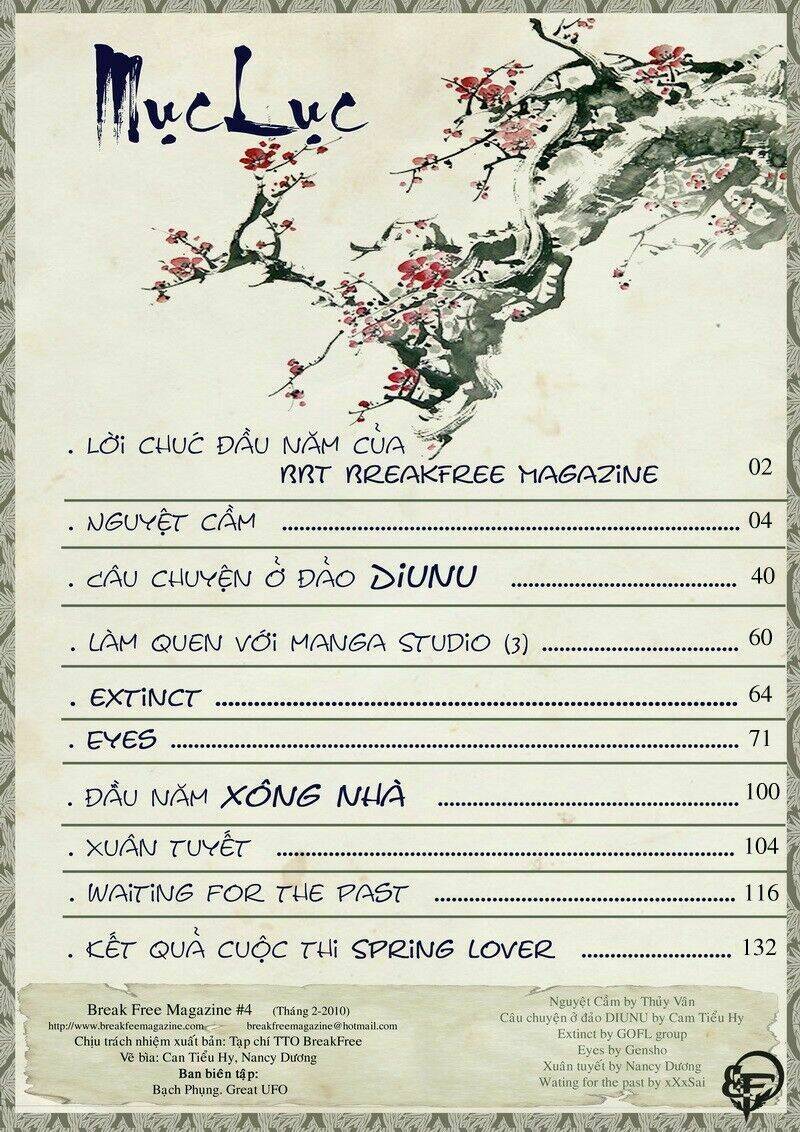 Mục Lục
. LỜI CHÚC ĐẦU NĂM CỦA
BBT BREAKFREE MAGAZINE 02
. NGUYỆT CẦM 04
. CÂU CHUYỆN Ở ĐẢO DIUNU 40
. LÀM QUEN VỚI MANGA STUDIO (3) 60
. EXTINCT 64
. EYES 71
. ĐẦU NĂM XÔNG NHÀ 100
. XUÂN TUYẾT 104
. WAITING FOR THE PAST 116
. KẾT QUẢ CUỘC THI SPRING LOVER 132
Break Free Magazine #4 (Tháng 2-2010)
http://www.breakfeemagazine.com breakfreemagazine@hotmail.com
Chịu trách nhiệm xuất bản: Tạp chí TTO BreakFree
Vẽ bìa: Can Tiểu Hy, Nancy Dương
Ban biên tập:
Bạch Phụng. Great UFO
Nguyệt Cầm by Thủy Vân
Câu chuyện ở đảo DIUNU by Cam Tiểu Hy
Extinct by GOFL group
Eyes by Gensho
Xuân tuyết by Nancy Dương
Wating for the past by xXxSai